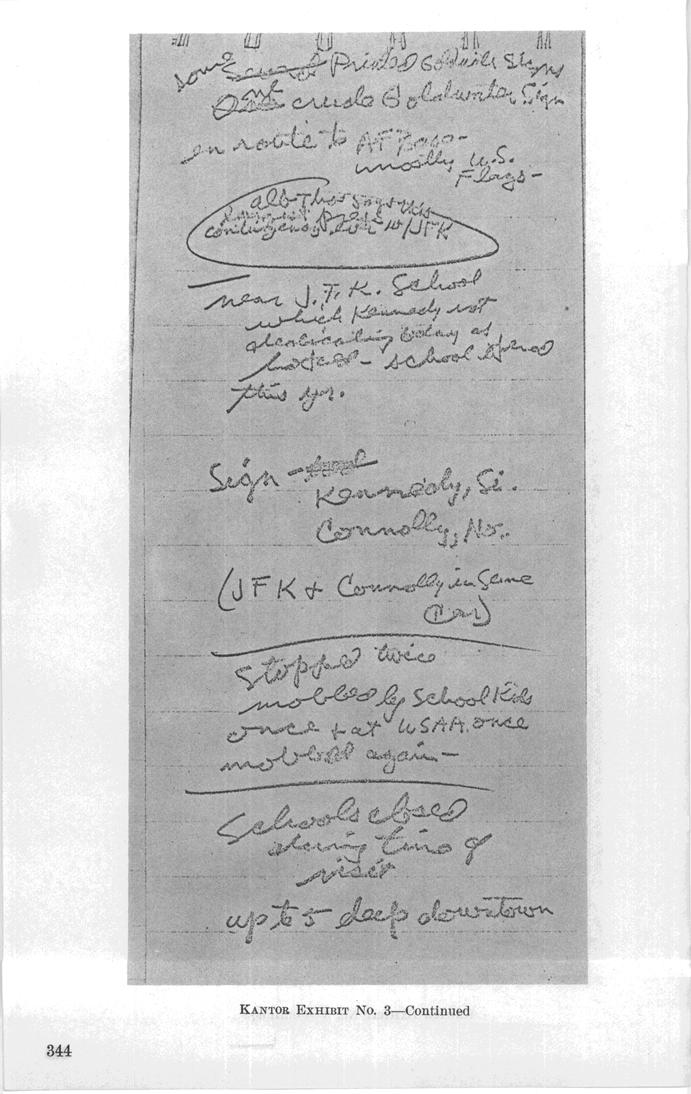 some Several Printed Goldwater Signs
One crude Goldwater Sign
en route to AF Base -
mostly U.S.
Flags -
Alb Thos says this
contingency w/JFK
near J.F.K. School
which Kennedy not
dedicating today as
- school opened
this yr.
Sign -
Kennedy, Si.
Connolly, No.
(JFK + Connolly in Same
Car)
Stopped twice
mobbed by School Kids
once + at USAA. once
mobbed again -
Schools closed
during time of
visit
up to 5 deep downtown
KANTOR EXHIBIT NO. 3—Continued
344